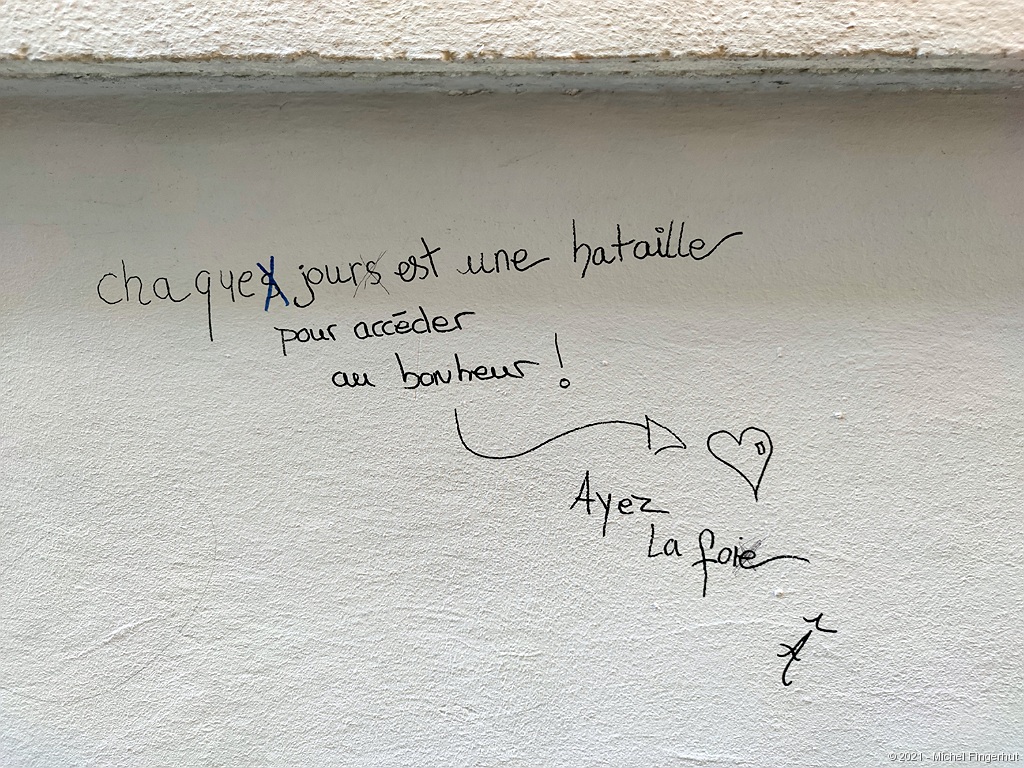 chaques jours est une bataille
pour accéder
au bonheur !
Ayez
La foie
© 2021 - Michel Fingerhut